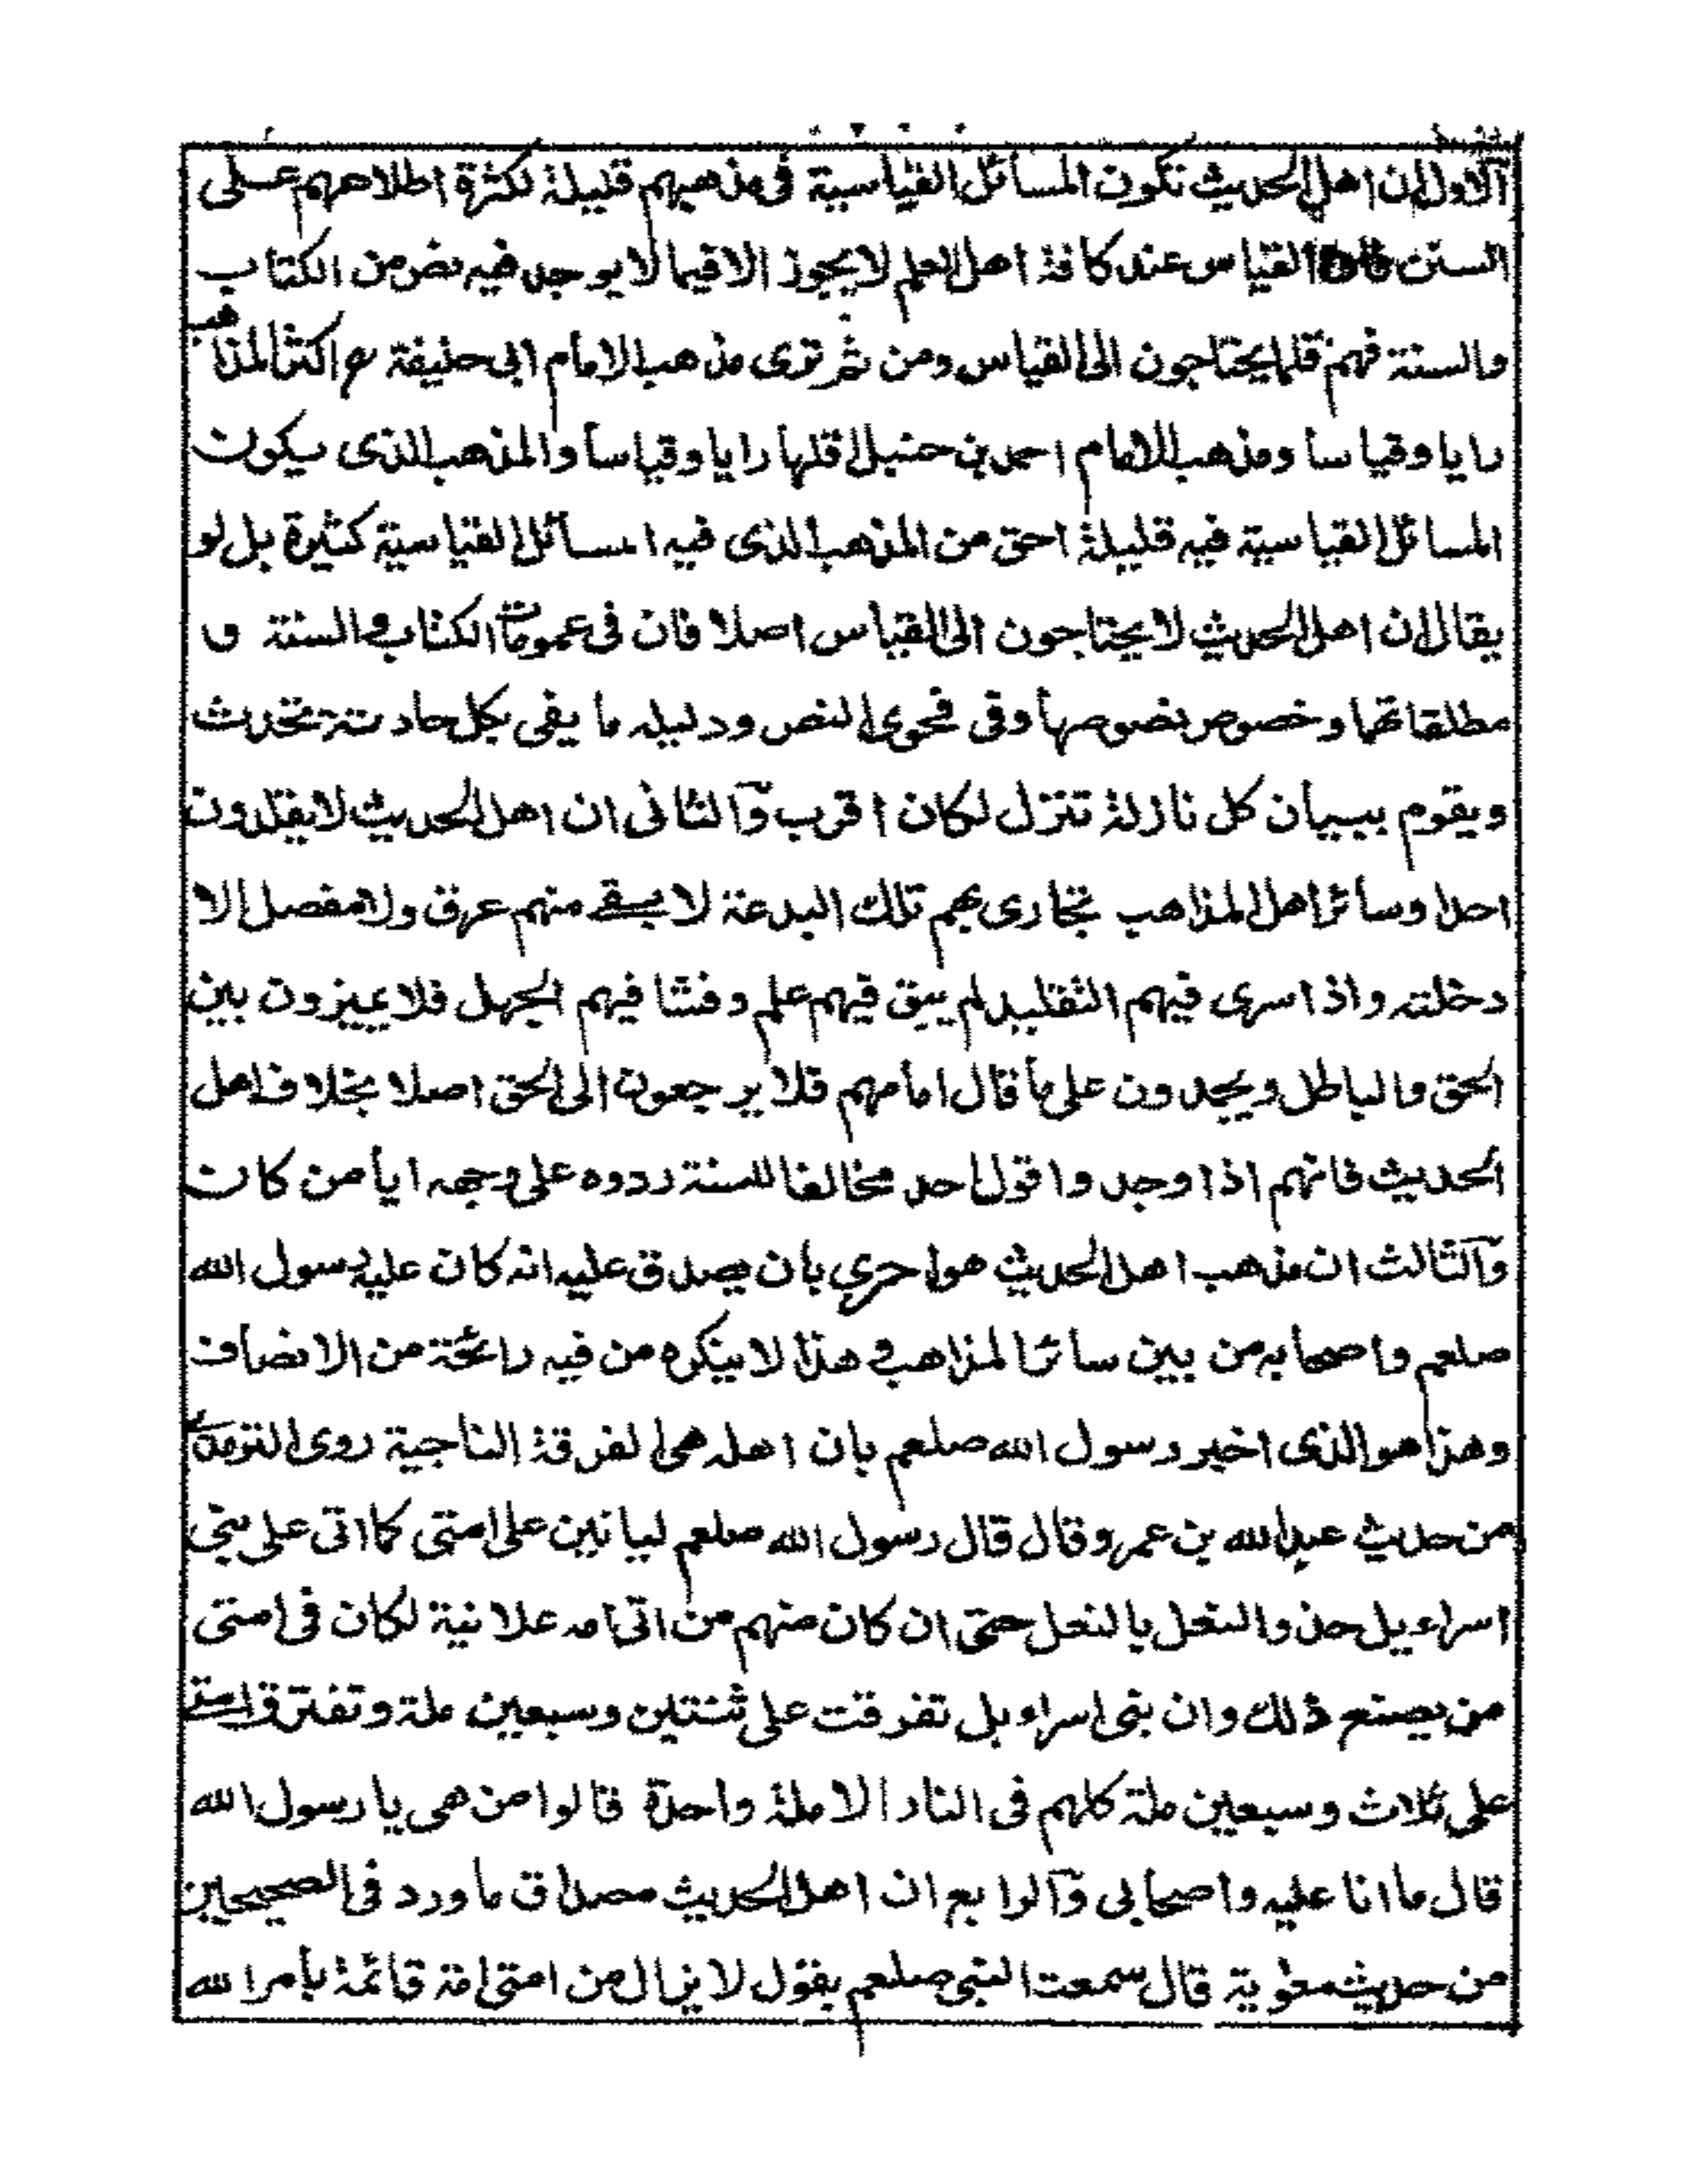 الاول ان اهل الحديث تكون المسائل القياسية فى مذهبهم قليلة لكثرة اطلاعهم على
السنن القياس عند كافة اهل العلم لا يجوز الا فيما لا يوجد فيه نص من الكتاب
والسنة فهم قلما يحتاجون الى القياس ومن ثم ترى مذهب الامام ابى حنيفة رح اكثر المذاهب
رايا وقياسا ومذهب الامام احمد بن حنبل اقلها رايا وقياسا والمذهب الذى يكون
المسائل القياسية فيه قليلة احق من المذهب الذى فيه المسائل القياسية كثيرة بل لو
يقال ان اهل الحديث لا يحتاجون الى القياس اصلا فان فى عمومات الكتاب والسنة و
مطلقاتهما وخصوص نصوصها وفى فحوى النص ودليله ما يفى بكل حادثة تحدث
ويقوم ببيان كل نازلة تنزل لكان اقرب والثانى ان اهل الحديث لا يقلدون
احدا وسائر اهل المذاهب تجارى بهم تلك البدعة لا يبقى منهم عرق ولا مفصل الا
دخلته واذا سرى فيهم التقليد لم يبق فيهم علم وفشا فيهم الجهل فلا يميزون بين
الحق والباطل ويجمدون على ما قال امامهم فلا يرجعون الى الحق اصلا بخلاف اهل
الحديث فانهم اذا وجدوا قول احد مخالفا للسنة ردوه على وجهه ايا من كان
والثالث ان مذهب اهل الحديث هو احرى بان يصدق عليه انه كان عليه رسول الله
صلعم واصحابه من بين سائر المذاهب و هذا لا ينكره من فيه رائحة من الانصاف
وهذا هو الذى اخبر رسول الله صلعم بان اهله هى الفرقة الناجية روى الترمذى
من حديث عبد الله بن عمرو قال قال رسول الله صلعم لياتين على امتى كما اتى على بنى
اسراءيل حذو النعل بالنعل حتى ان كان منهم من اتى امه علانية لكان فى امتى
من يصنع ذلك وان بنى اسراءيل تفرقت على ثنتين وسبعين ملة وتفترق امتى
على ثلاث وسبعين ملة كلهم فى النار الا ملة واحدة قالوا من هى يا رسول الله
قال ما انا عليه واصحابى والرابع ان اهل الحديث مصداق ما ورد فى الصحيحين
من حديث معوية قال سمعت النبى صلعم يقول لا يزال من امتى امة قائمة بأمر الله